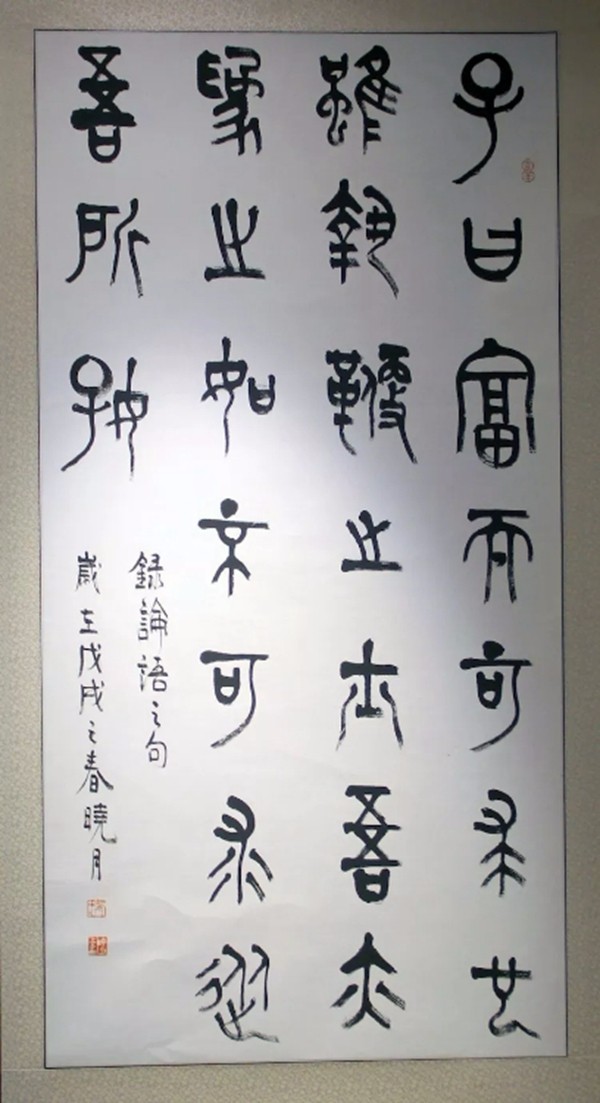 子曰富而可求也
雖執鞭之士吾亦
為之如不可求從
吾所好
錄論語之句
歲在戊戌之春曉月